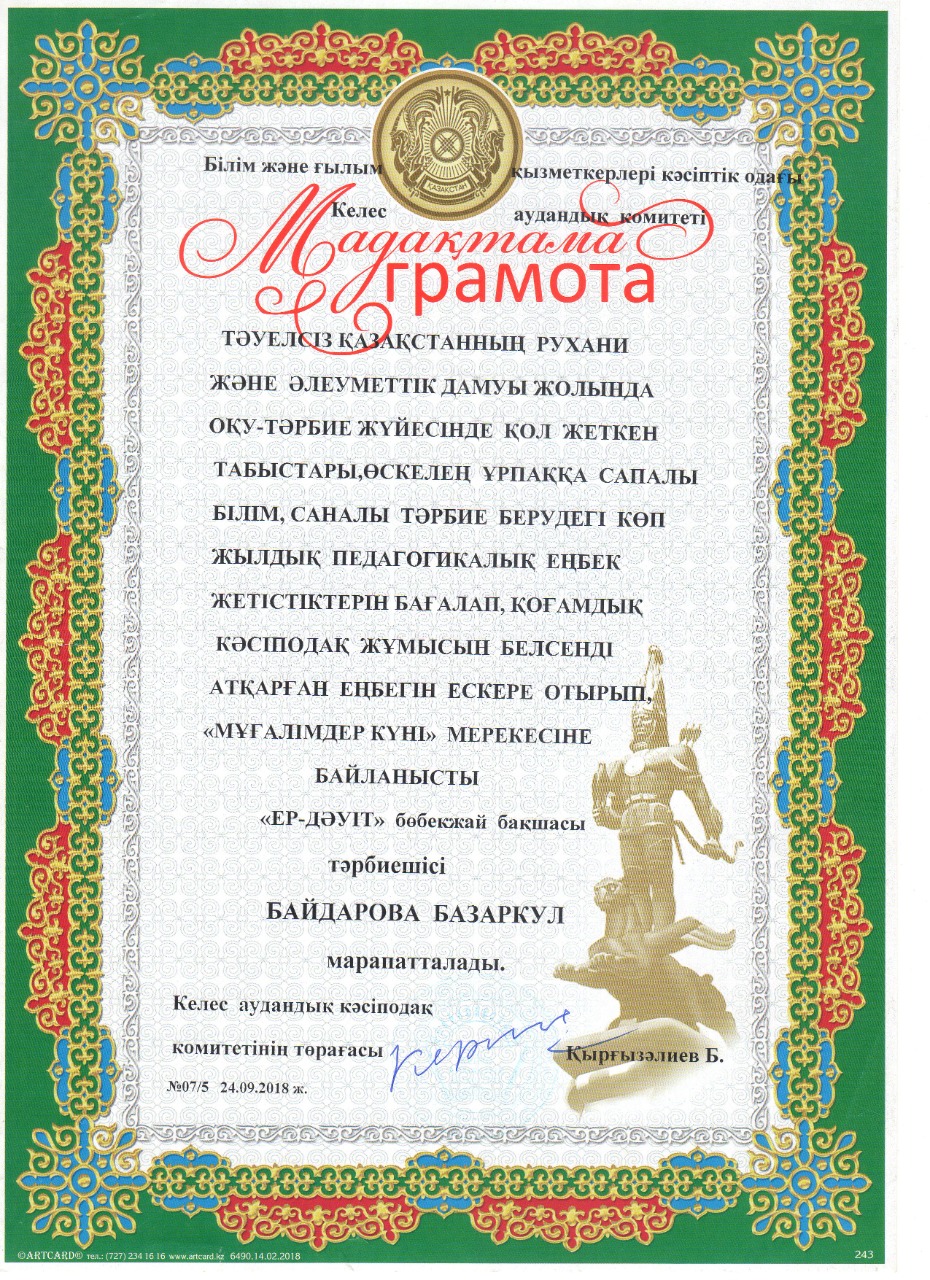 Білім және ғылым қызметкерлері кәсіптік одағы
Келес аудандық комитеті
ҚАЗАҚСТАН
Мадақтама
грамота
ТӘУЕЛСІЗ ҚАЗАҚСТАННЫҢ РУХАНИ
ЖӘНЕ ӘЛЕУМЕТТІК ДАМУЫ ЖОЛЫНДА
ОҚУ-ТӘРБИЕ ЖҮЙЕСІНДЕ ҚОЛ ЖЕТКЕН
ТАБЫСТАРЫ,ӨСКЕЛЕҢ ҰРПАҚҚА САПАЛЫ
БІЛІМ, САНАЛЫ ТӘРБИЕ БЕРУДЕГІ КӨП
ЖЫЛДЫҚ ПЕДАГОГИКАЛЫҚ ЕҢБЕК
ЖЕТІСТІКТЕРІН БАҒАЛАП, ҚОҒАМДЫҚ
КӘСІПОДАҚ ЖҰМЫСЫН БЕЛСЕНДІ
АТҚАРҒАН ЕҢБЕГІН ЕСКЕРЕ ОТЫРЫП,
«МҰҒАЛІМДЕР КҮНІ» МЕРЕКЕСІНЕ
БАЙЛАНЫСТЫ
«ЕР-ДӘУІТ» бөбекжай бақшасы
тәрбиешісі
БАЙДАРОВА БАЗАРКУЛ
марапатталады.
Келес аудандық кәсіподақ
комитетінің төрағасы Қырғызәлиев Б.
№07/5 24.09.2018 ж.
©ARTCARD® тел.: (727) 234 16 16 www.artcard.kz 6490.14.02.2018
243